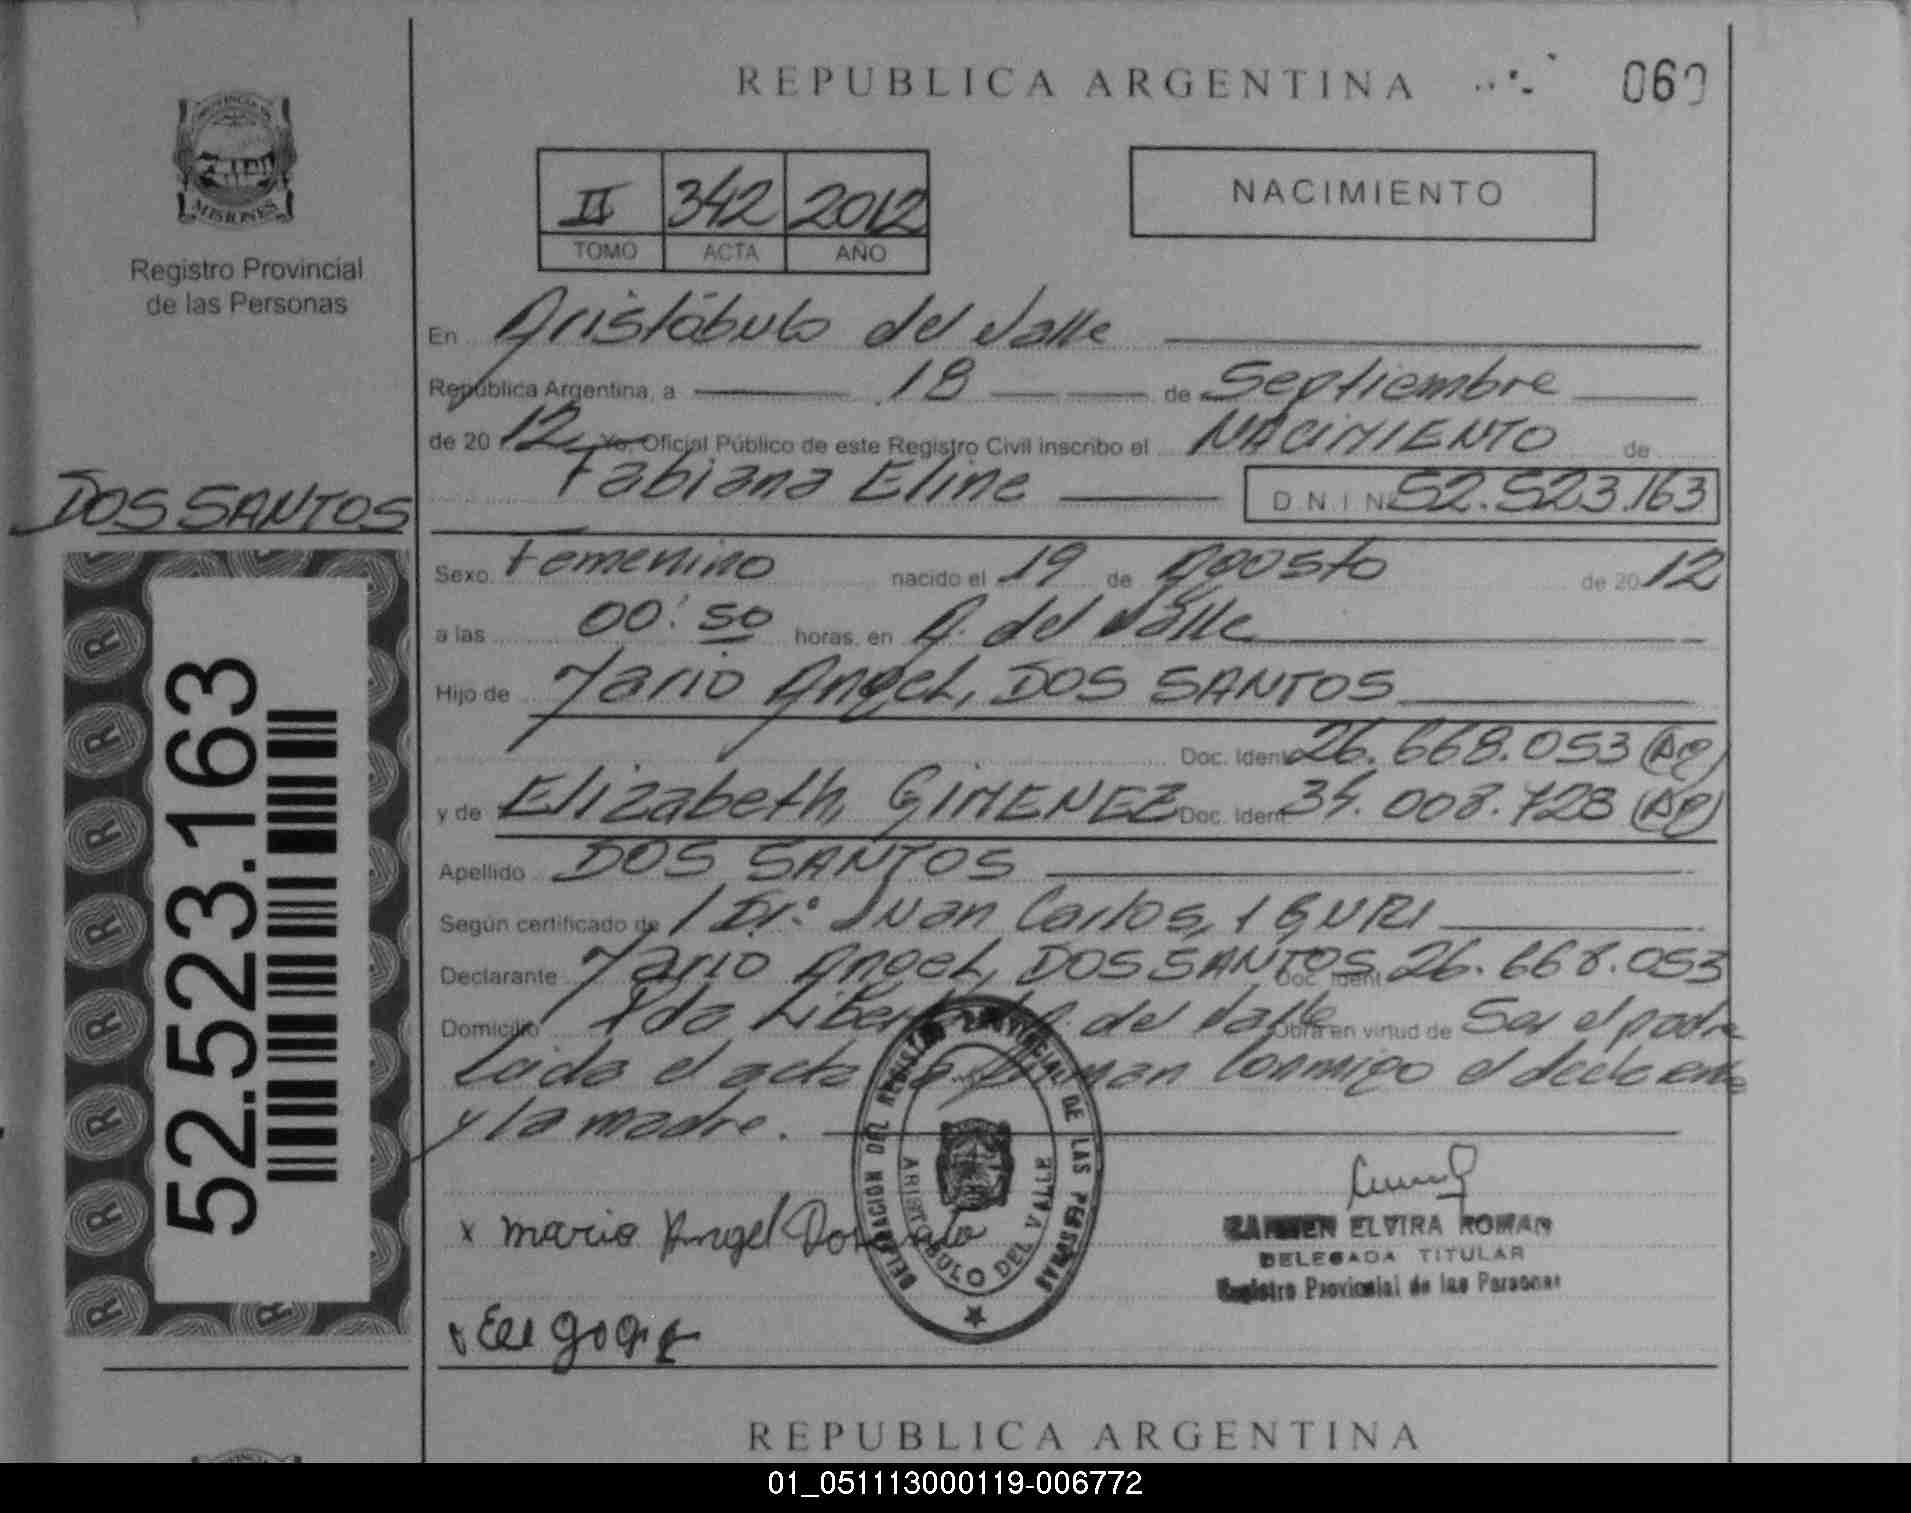 REPUBLICA ARGENTINA
060
PROVINCIA DE
MISIONES
Registro Provincial
de las Personas
II 342 2012
TOMO ACTA AÑO
NACIMIENTO
En Aristóbulo del Valle
República Argentina, a 18 de Septiembre
de 20 12 Yo, Oficial Público de este Registro Civil inscribo el NACIMIENTO de
DOS SANTOS
Fabiana Eline D.N.I Nº 52.523.163
Sexo Femenino nacido el 19 de Agosto de 20 12
a las 00:50 horas, en A. del Valle
Hijo de Mario Angel, DOS SANTOS
Doc. Ident 26.668.053 (Ap)
y de Elizabeth, GIMENEZ Doc. Ident 34.008.728 (Ap)
Apellido DOS SANTOS
Según certificado de / Dr: Juan Carlos,
Declarante Mario Angel, DOS SANTOS Doc. Ident 26.668.053
Domicilio A. del Valle Obra en virtud de Ser el padre
Leida el acta la firman conmigo el declarante
y la madre.
52.523.163
DELEGACION DEL REGISTRO PROVINCIAL DE LAS PERSONAS
ARISTOBULO DEL VALLE
x mario Angel
CARMEN ELVIRA ROMAN
DELEGADA TITULAR
Registro Provincial de las Personas
REPUBLICA ARGENTINA
01_051113000119-006772